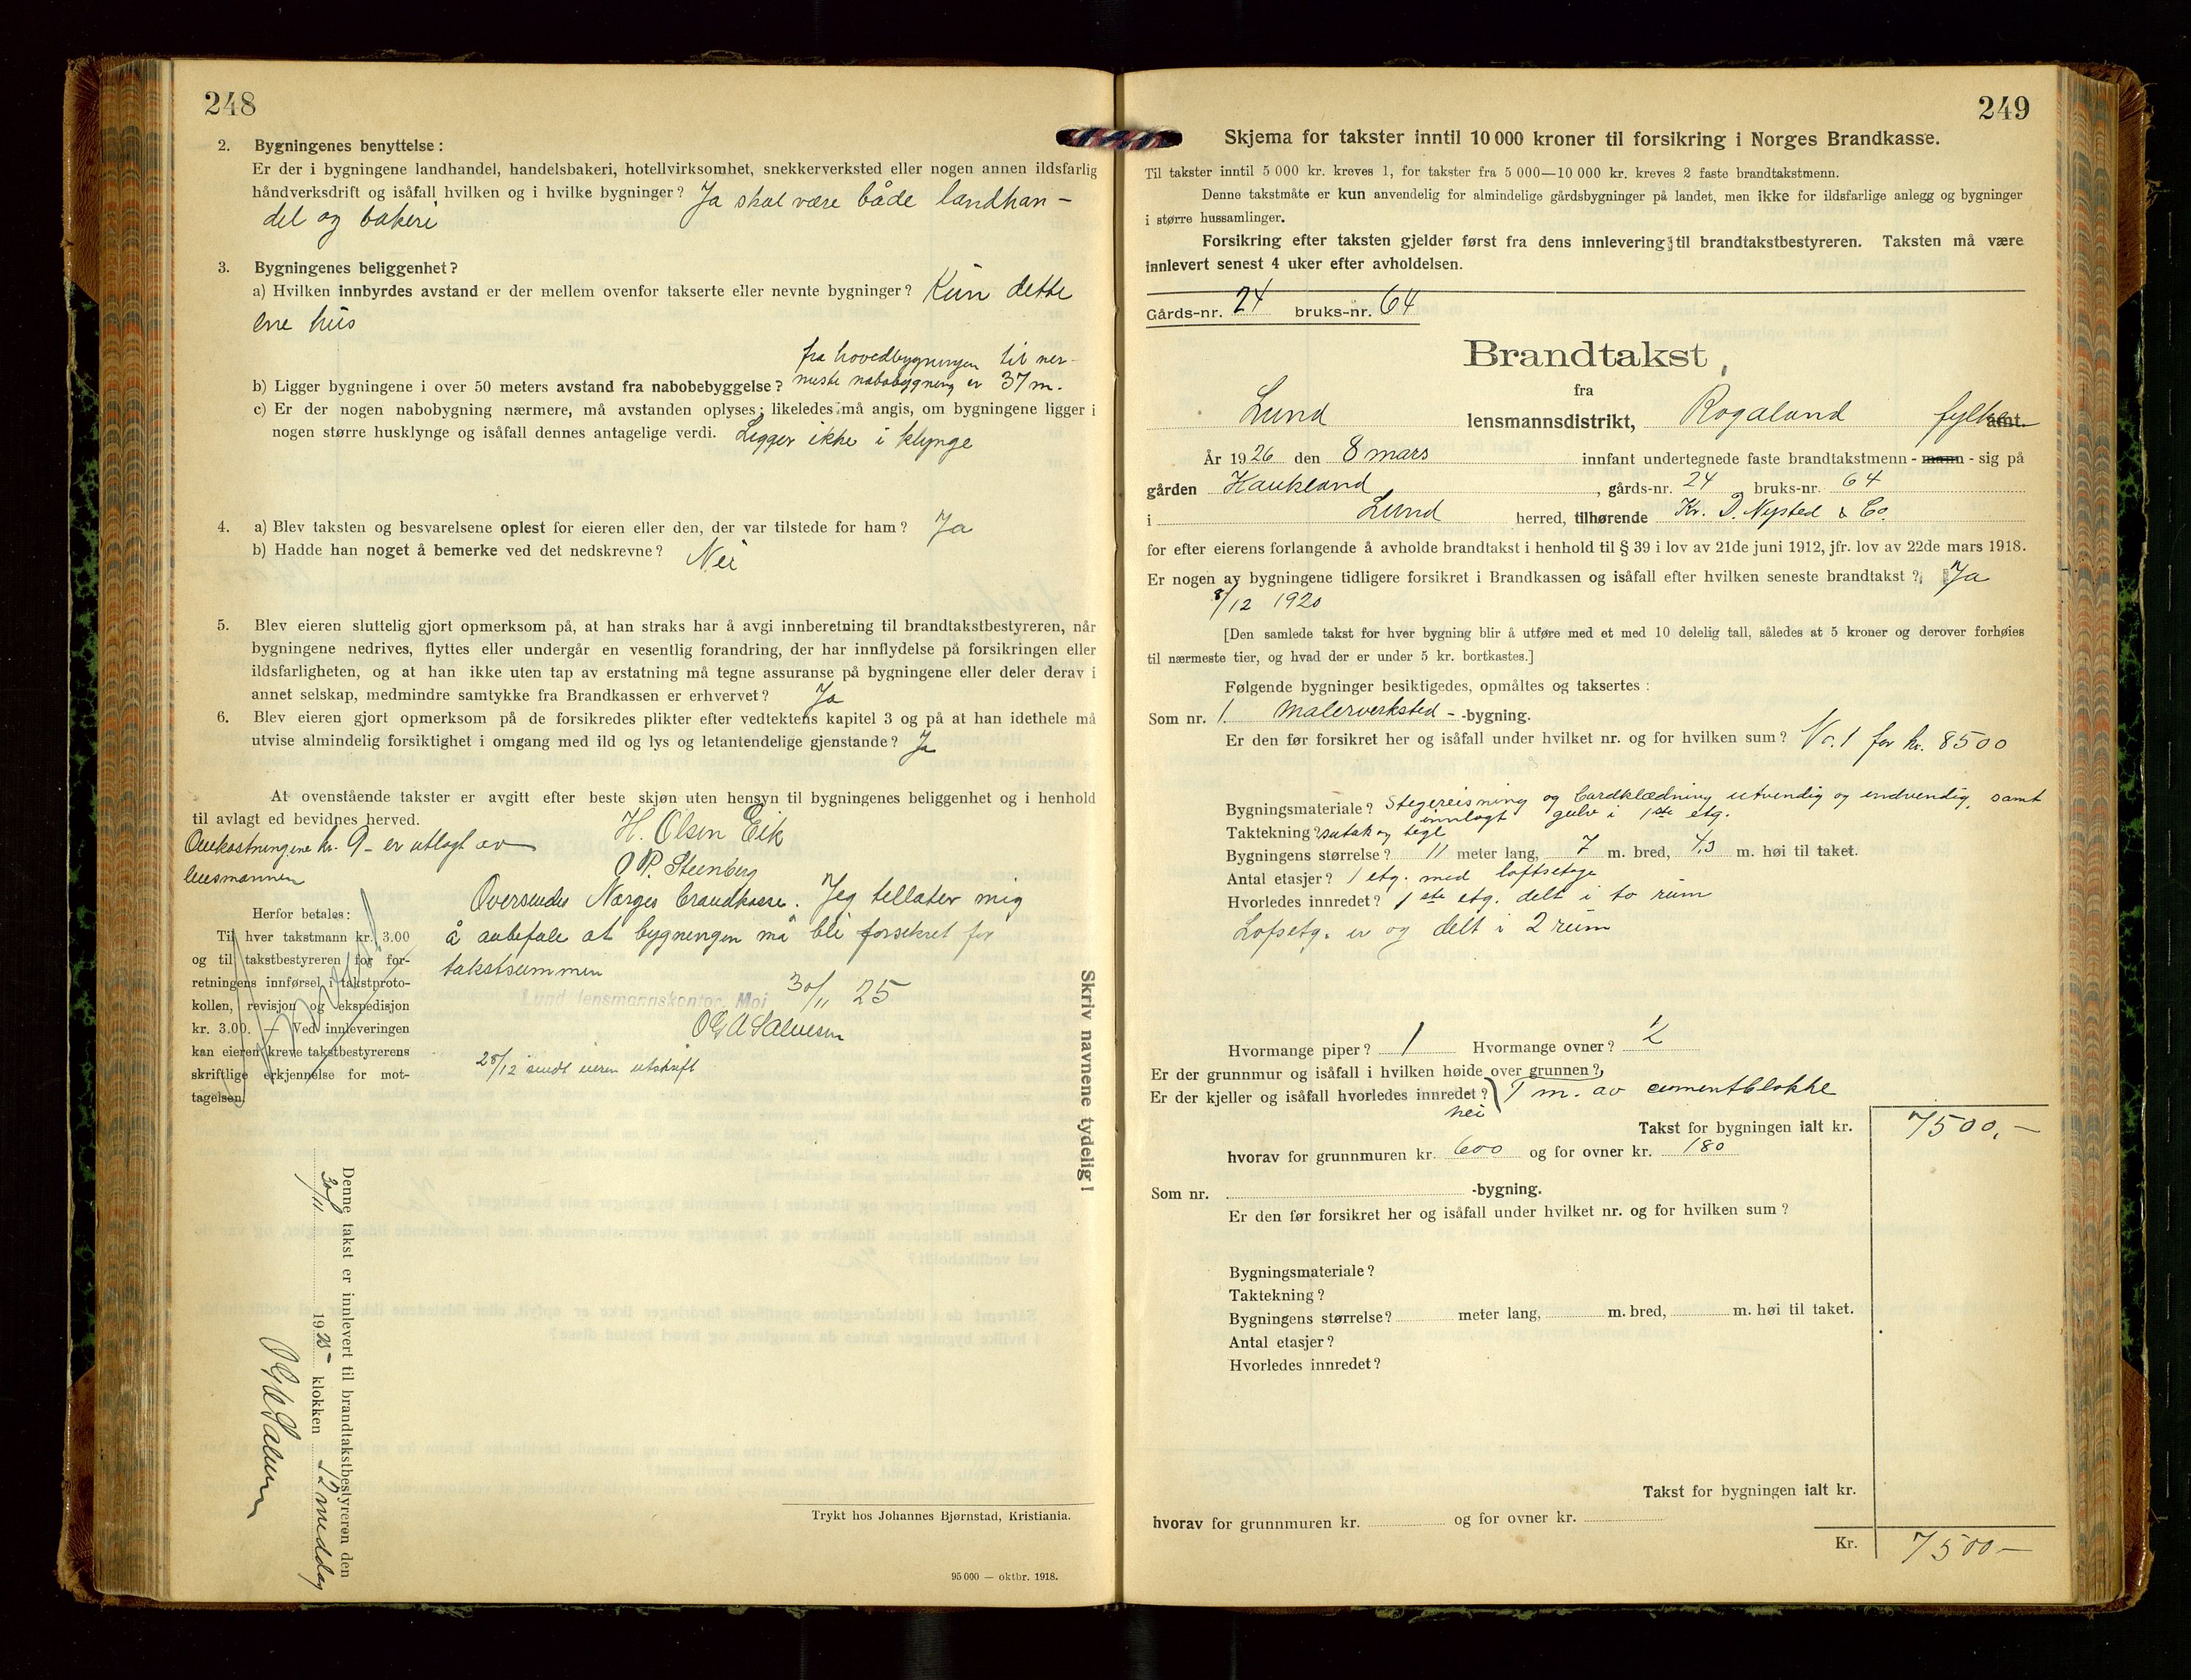 248
2. Bygningenes benyttelse:
Er der i bygningene landhandel, handelsbakeri, hotellvirksomhet, snekkerverksted eller nogen annen ildsfarlig
håndverksdrift og isåfall hvilken og i hvilke bygninger? Ja skal være både landhan-
del og bakeri
3. Bygningenes beliggenhet?
a) Hvilken innbyrdes avstand er der mellem ovenfor takserte eller nevnte bygninger? Kun dette
ene hus
fra hovedbygningen til ner-
b) Ligger bygningene i over 50 meters avstand fra nabobebyggelse? meste nabobygning er 37 m.
c) Er der nogen nabobygning nærmere, må avstanden oplyses; likeledes må angis, om bygningene ligger i
nogen større husklynge og isåfall dennes antagelige verdi. Ligger ikke i klynge
4. a) Blev taksten og besvarelsene oplest for eieren eller den, der var tilstede for ham? Ja
b) Hadde han noget å bemerke ved det nedskrevne? Nei
5. Blev eieren sluttelig gjort opmerksom på, at han straks har å avgi innberetning til brandtakstbestyreren, når
bygningene nedrives, flyttes eller undergår en vesentlig forandring, der har innflydelse på forsikringen eller
ildsfarligheten, og at han ikke uten tap av erstatning må tegne assuranse på bygningene eller deler derav i
annet selskap, medmindre samtykke fra Brandkassen er erhvervet? Ja
6. Blev eieren gjort opmerksom på de forsikredes plikter efter vedtektens kapitel 3 og på at han idethele må
utvise almindelig forsiktighet i omgang med ild og lys og letantendelige gjenstande? Ja
At ovenstående takster er avgitt efter beste skjøn uten hensyn til bygningenes beliggenhet og i henhold
til avlagt ed bevidnes herved.
H. Olsen Eik
Omkostningene kr. 9- er utlagt av
lensmannen
O P. Steenberg
Oversendes Norges brandkasse. Jeg tillater mig
å anbefale at bygningen må bli forsikret for
takstsummen
Lund lensmannskontor, Moi 30/11 25
O G A Salvesen
28/12 sendt eieren utskrift
Herfor betales:
Til hver takstmann kr. 3.00
og til takstbestyreren for for-
retningens innførsel i takstproto-
kollen, revisjon og ekspedisjon
kr. 3.00. — Ved innleveringen
kan eieren kreve takstbestyrerens
skriftlige erkjennelse for mot-
tagelsen.
Skriv navnene tydelig!
Denne takst er innlevert til brandtakstbestyreren den
30/11 1925- klokken 12 middag
O G A Salvesen
Trykt hos Johannes Bjørnstad, Kristiania.
95 000 — oktbr. 1918.
249
Skjema for takster inntil 10 000 kroner til forsikring i Norges Brandkasse.
Til takster inntil 5 000 kr. kreves 1, for takster fra 5 000—10 000 kr. kreves 2 faste brandtakstmenn.
Denne takstmåte er kun anvendelig for almindelige gårdsbygninger på landet, men ikke for ildsfarlige anlegg og bygninger
i større hussamlinger.
Forsikring efter taksten gjelder først fra dens innlevering til brandtakstbestyreren. Taksten må være
innlevert senest 4 uker efter avholdelsen.
Gårds-nr. 24 bruks-nr. 64
Brandtakst
fra
Lund lensmannsdistrikt, Rogaland fylke amt.
År 1926 den 8 mars innfant undertegnede faste brandtakstmenn - mann - sig på
gården Haukland, gårds-nr. 24 bruks-nr. 64
i Lund herred, tilhørende Kr. D. Nysted & Co.
for efter eierens forlangende å avholde brandtakst i henhold til § 39 i lov av 21de juni 1912, jfr. lov av 22de mars 1918.
Er nogen av bygningene tidligere forsikret i Brandkassen og isåfall efter hvilken seneste brandtakst? Ja
8/12 1920
[Den samlede takst for hver bygning blir å utføre med et med 10 delelig tall, således at 5 kroner og derover forhøies
til nærmeste tier, og hvad der er under 5 kr. bortkastes.]
Følgende bygninger besiktigedes, opmåltes og taksertes:
Som nr. 1. Malerverksted - -bygning.
Er den før forsikret her og isåfall under hvilket nr. og for hvilken sum? No. 1 for kr. 8500
Bygningsmateriale? Stegereisning og bordklædning utvendig og indvendig, samt
innlagt gulv i 1ste etg.
Taktekning? sutak og tegl
Bygningens størrelse? 11 meter lang, 7 m. bred, 4,3 m. høi til taket.
Antal etasjer? 1 etg. med loftsetage
Hvorledes innredet? 1ste etg. delt i to rum
Lofsetg. er og delt i 2 rum
Hvormange piper? 1 Hvormange ovner? 2
Er der grunnmur og isåfall i hvilken høide over grunnen?
Er der kjeller og isåfall hvorledes innredet? 1 m. av cementblokke
nei
Takst for bygningen ialt kr. 7500,-
hvorav for grunnmuren kr. 600 og for ovner kr. 180
Som nr. -bygning.
Er den før forsikret her og isåfall under hvilket nr. og for hvilken sum?
Bygningsmateriale?
Taktekning?
Bygningens størrelse? meter lang, m. bred, m. høi til taket.
Antal etasjer?
Hvorledes innredet?
Takst for bygningen ialt kr.
hvorav for grunnmuren kr. og for ovner kr.
Kr. 7500-